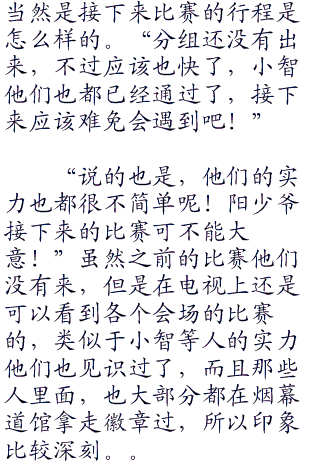 当然是接下来比赛的行程是
怎么样的。“分组还没有出
来，不过应该也快了，小智
他们也都已经通过了，接下
来应该难免会遇到吧！”
“说的也是，他们的实
力也都很不简单呢！阳少爷
接下来的比赛可不能大
意！”虽然之前的比赛他们
没有来，但是在电视上还是
可以看到各个会场的比赛
的，类似于小智等人的实力
他们也见识过了，而且那些
人里面，也大部分都在烟幕
道馆拿走徽章过，所以印象
比较深刻。。